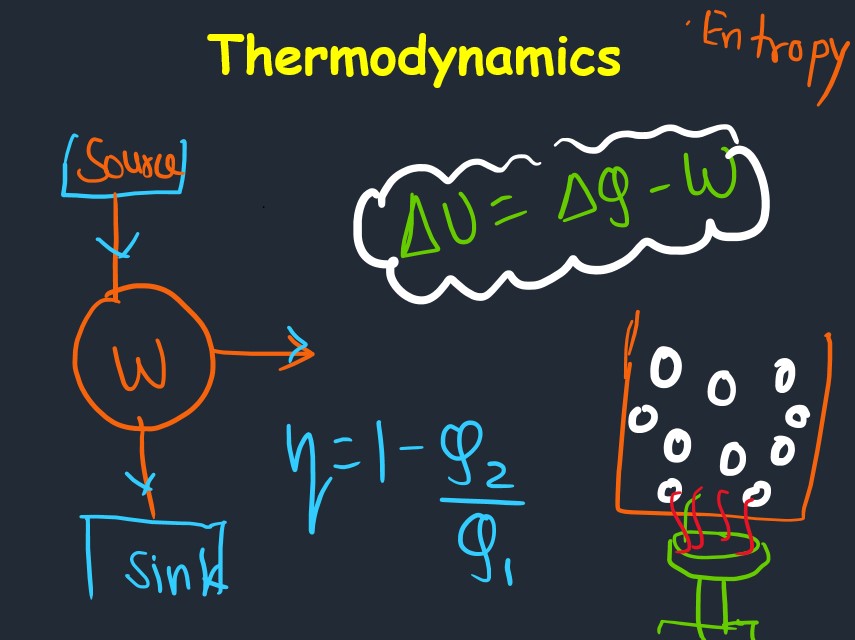 Thermodynamics
Entropy
Source
ΔU = ΔQ - W
W
η = 1 - Q₂/Q₁
Sink